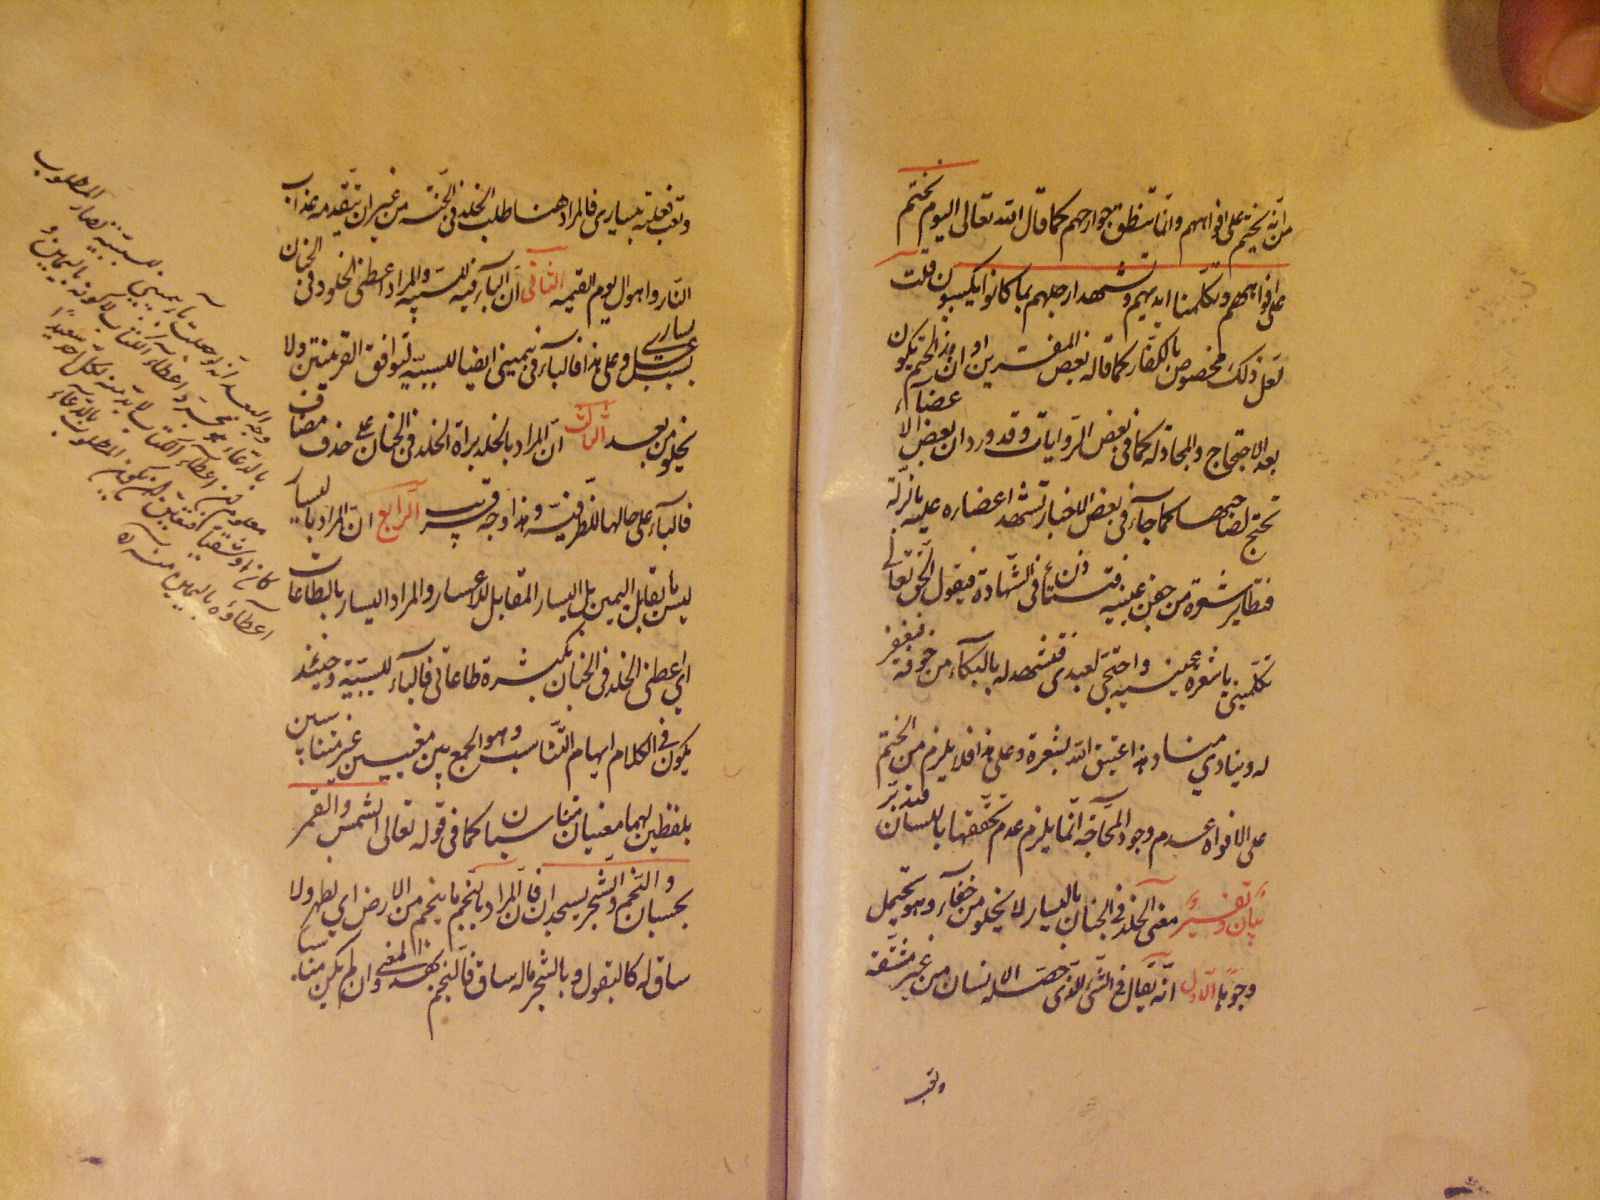 من انه يختم على افواههم وانما تنطق جوارحهم كما قال الله تعالى اليوم نختم
على افواههم وتكلمنا ايديهم وتشهد ارجلهم بما كانوا يكسبون قلت
لعل ذلك مخصوص بالكفار كما قاله بعض المفسرين او ان هذا الختم يكون
بعد الاحتجاج والمجادلة كما في بعض الروايات وقد ورد ان بعض الاعضاء
تحتج لصاحبها كما جاء في بعض الاخبار تشهد اعضاره عليه بالزلة
فتطاير شعرة من جفن عينيه فتستأذن في الشهادة فيقول الحق تعالى
تكلمي يا شعرة عينيه واحتجي لعبدي فتشهد له بالبكاء من خوفه فيغفر
له وينادي مناد هذا عتيق الله بشعرة وعلى هذا فلا يلزم من الختم
على الافواه عدم وجود المحاجة انما يلزم عدم تحققها باللسان فتدبر
بيان وتفسير معنى الخلد في الجنان باليسار لا يخلو من خفاء وهو يحتمل
وجوها الاول انه يقال في الشئ الذي حصله الانسان من غير مشقة
وتعب
وتعب فعلته بيساري فالمراد هنا طلب الخلد في الجنة من غير ان يتقدمه عذاب
النار واهوال يوم القيمة الثاني ان الباء فيه للسببية والمراد اعطني الخلود في الجنان
بسبب غسل يساري وعلى هذا فالباء في بيميني ايضا للسببية ليوافق القرينتين ولا
يخلو من بعد الثالث ان المراد بالخلد براة الخلد في الجنان على حذف مضاف
فالباء على حالها للظرفية وهذا وجه قريب الرابع ان المراد باليسار
ليس ما يقابل اليمين بل اليسار المقابل للاعسار والمراد اليسار بالطاعات
اي اعطني الخلد في الجنان بكثرة طاعاتي فالباء للسببية وحينئذ
يكون في الكلام ايهام التناسب وهو الجمع بين معنيين غير متناسبين
بلفظين لهما معنيان متناسبان كما في قوله تعالى الشمس والقمر
بحسبان والنجم والشجر يسجدان فان المراد بالنجم ما ينجم من الارض اي يظهر ولا
ساق له كالبقول وبالشجر ما له ساق فالنجم بهذا المعنى وان لم يكن مناسبا
وجه البعد انه لو جعلت باء بيميني للسببية لصار المطلوب